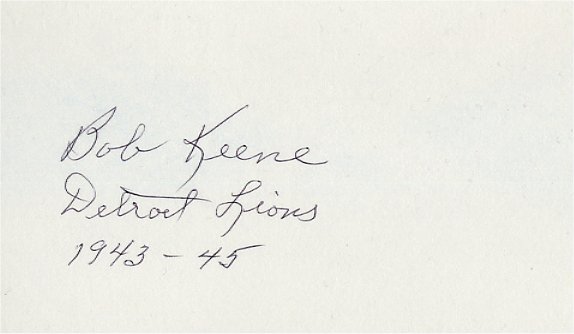 Bob Keene
Detroit Lions
1943 - 45